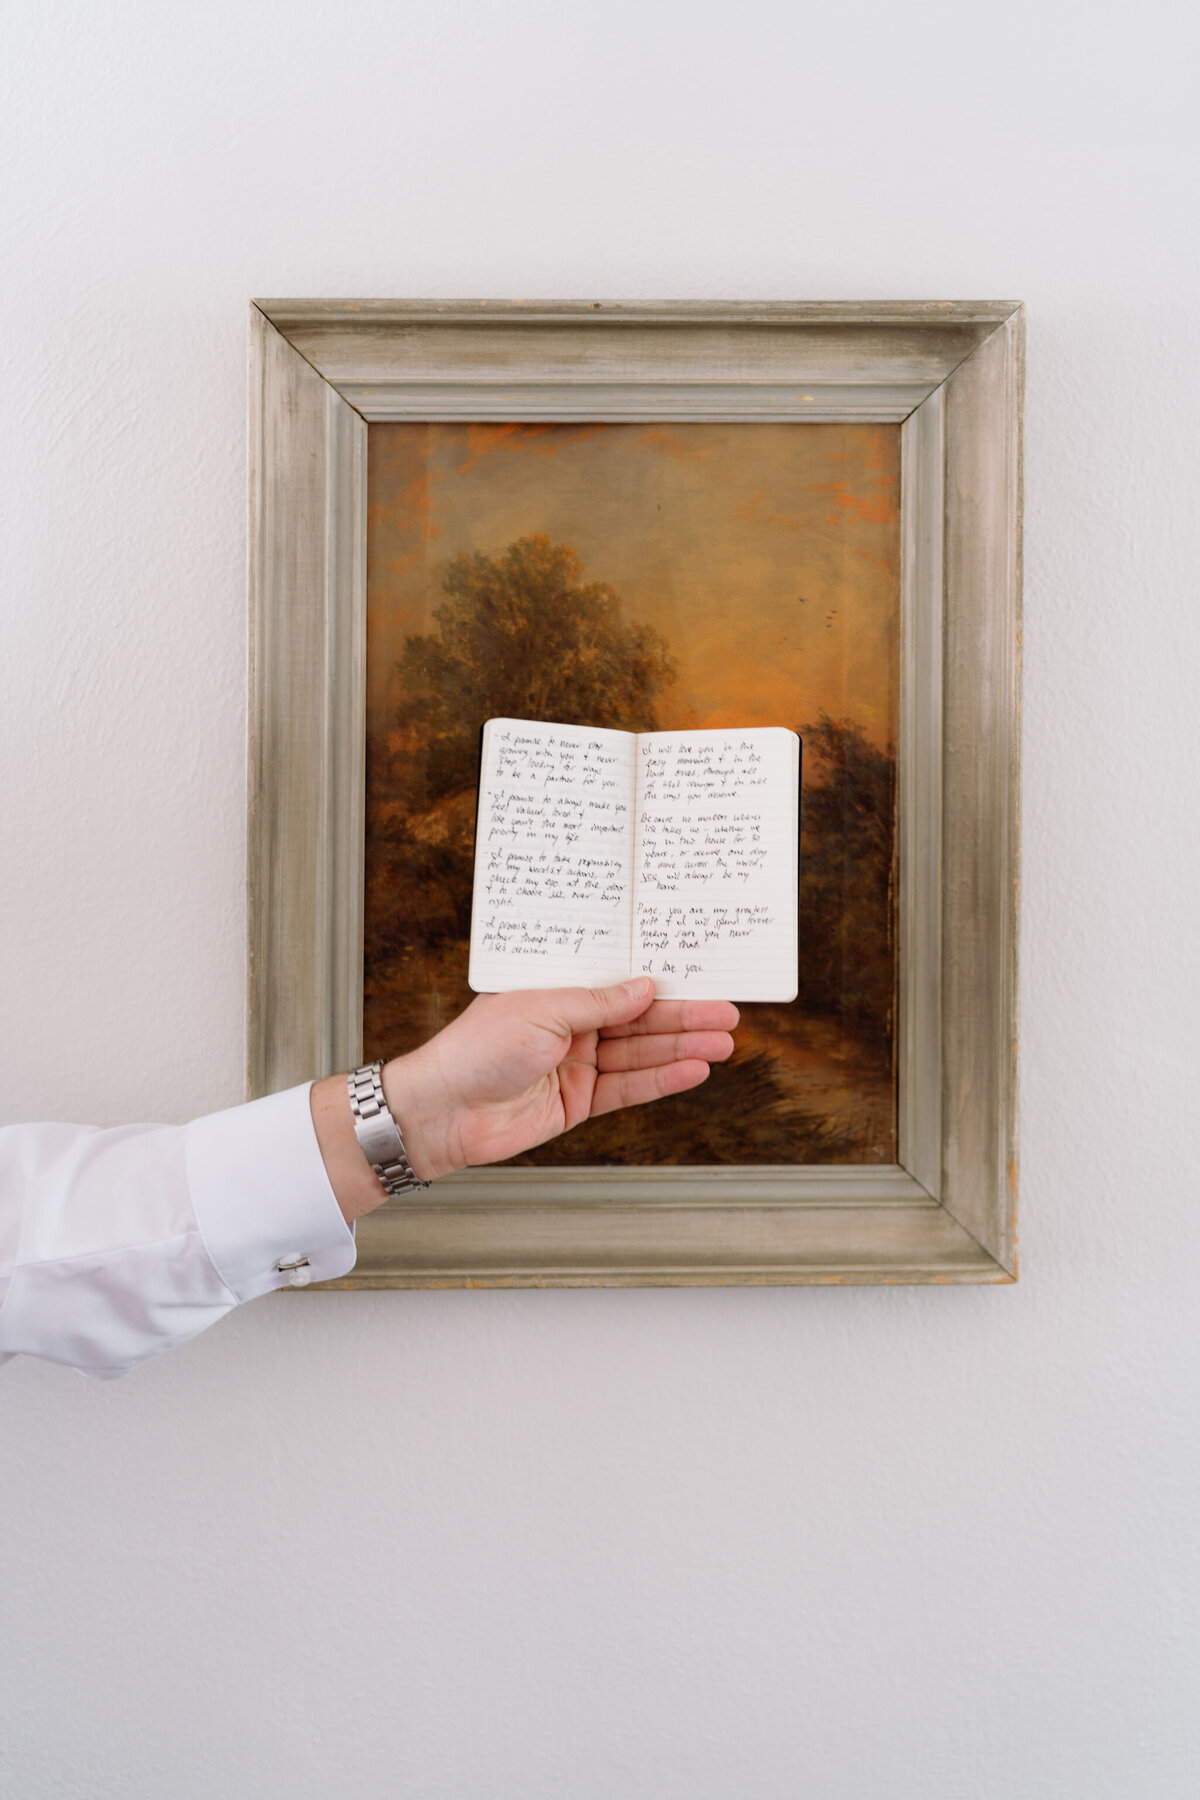 - I promise to never stop
growing with you & never
stop looking for ways
to be a partner for you.
- I promise to always make you
feel valued, loved &
like you're the most important
priority in my life.
- I promise to take responsibility
for my words & actions, to
check my ego at the door
& to choose us over being
right.
- I promise to always be your
partner through all of
life's decisions.
I will love you in the
easy moments & in the
hard ones, through all
of life's changes & in all
the ways you deserve.
Because no matter where
life takes us - whether we
stay in this house for 50
years, or decide one day
to move across the world,
you will always be my
home.
you are my greatest
gift & I will spend forever
making sure you never
forget that.
I love you